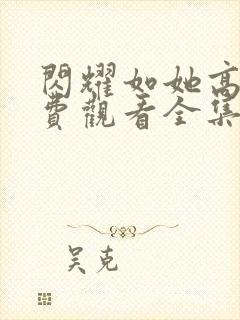 閃耀如她高
費觀看全集
吴克